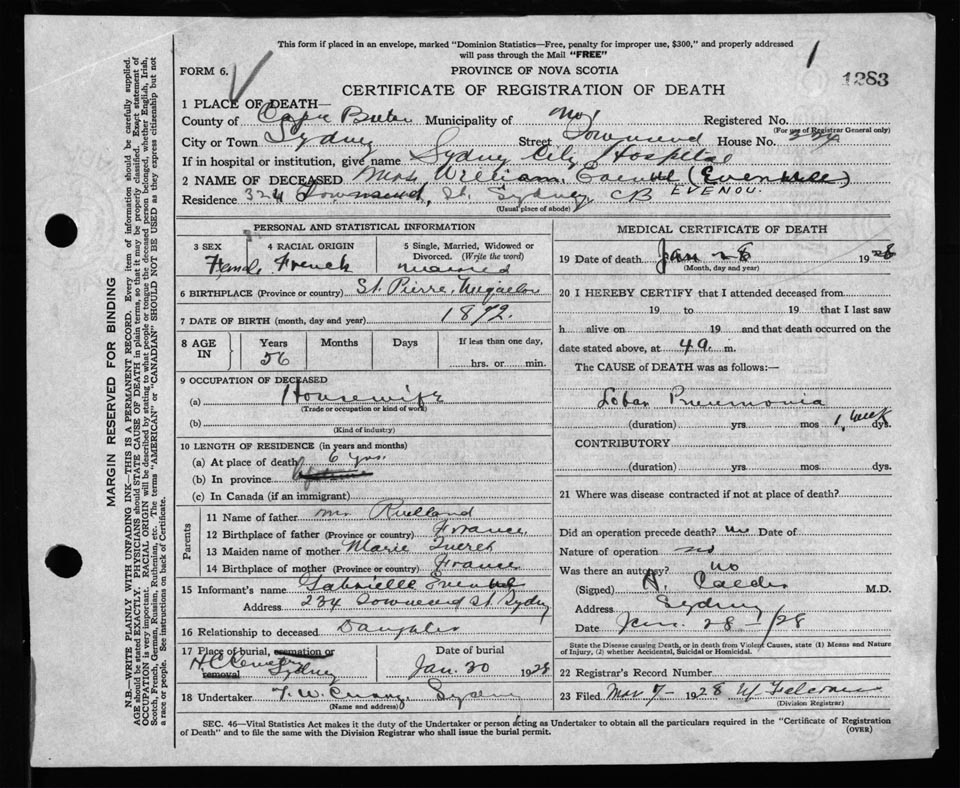 This form if placed in an envelope, marked "Dominion Statistics—Free, penalty for improper use, $300," and properly addressed
will pass through the Mail "FREE"
FORM 6.
PROVINCE OF NOVA SCOTIA
1
1283
CERTIFICATE OF REGISTRATION OF DEATH
1 PLACE OF DEATH—
County of Cape Breton Municipality of Registered No.
(For use of Registrar General only)
City or Town Sydney Street Townsend House No.
If in hospital or institution, give name Sydney City Hospital
2 NAME OF DECEASED Mrs. William
EVENOU.
Residence 324 Townsend, St. Sydney, CB
(Usual place of abode)
PERSONAL AND STATISTICAL INFORMATION
3 SEX
Female
4 RACIAL ORIGIN
French
5 Single, Married, Widowed or Divorced. (Write the word)
married
6 BIRTHPLACE (Province or country) St. Pierre, Miquelon
7 DATE OF BIRTH (month, day and year) 1872.
8 AGE IN
Years Months Days If less than one day,
56 hrs. or min.
9 OCCUPATION OF DECEASED
(a) Housewife
(Trade or occupation or kind of work)
(b)
(Kind of industry)
10 LENGTH OF RESIDENCE (in years and months)
(a) At place of death 6 yrs.
(b) In province
(c) In Canada (if an immigrant)
Parents
11 Name of father Mr Ruelland
12 Birthplace of father (Province or country) France
13 Maiden name of mother Marie
14 Birthplace of mother (Province or country) France
15 Informant's name Gabrielle
Address 234 Townsend St. Sydney
16 Relationship to deceased Daughter
17 Place of burial, cremation or removal
Sydney
Date of burial
Jan. 30 1928
18 Undertaker T. W. Sydney
(Name and address)
MEDICAL CERTIFICATE OF DEATH
19 Date of death Jan 28 1928
(Month, day and year)
20 I HEREBY CERTIFY that I attended deceased from
19 to 19 that I last saw
h alive on 19 and that death occurred on the
date stated above, at 4 a. m.
The CAUSE of DEATH was as follows:—
Lobar Pneumonia
(duration) yrs mos 1 week dys.
CONTRIBUTORY
(duration) yrs. mos. dys.
21 Where was disease contracted if not at place of death?
Did an operation precede death? no Date of
Nature of operation no
Was there an autopsy? no
(Signed) M.D.
Address Sydney
Date Jan. 28 - /28
State the disease causing Death, or in death from Violent Causes, state (1) Means and Nature of Injury, (2) whether Accidental, Suicidal or Homicidal.
22 Registrar's Record Number
23 Filed Mar 7- 1928
(Division Registrar)
SEC. 46—Vital Statistics Act makes it the duty of the Undertaker or person acting as Undertaker to obtain all the particulars required in the "Certificate of Registration
of Death" and to file the same with the Division Registrar who shall issue the burial permit.
(OVER)
MARGIN RESERVED FOR BINDING
N.B.—WRITE PLAINLY WITH UNFADING INK—THIS IS A PERMANENT RECORD. Every item of information should be carefully supplied.
AGE should be stated EXACTLY. PHYSICIANS should STATE CAUSE OF DEATH in plain terms, so that it may be properly classified. Exact statement of
OCCUPATION is very important. RACIAL ORIGIN will be described by stating to what people or tongue the deceased person belonged, whether English, Irish,
Scotch, French, German, Russian, Ruthenian, etc. The terms "AMERICAN" or "CANADIAN" SHOULD NOT BE USED as they express citizenship but not
a race or people. See instructions on back of Certificate.